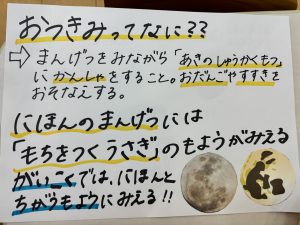 おつきみってなに??
⇨ まんげつをみながら「あきのしゅうかくもつ」
にかんしゃをすること。おだんごやすすきを
おそなえする。
にほんのまんげつには
「もちをつくうさぎ」のもようがみえる
がいこくでは、にほんと
ちがうもようにみえる!!